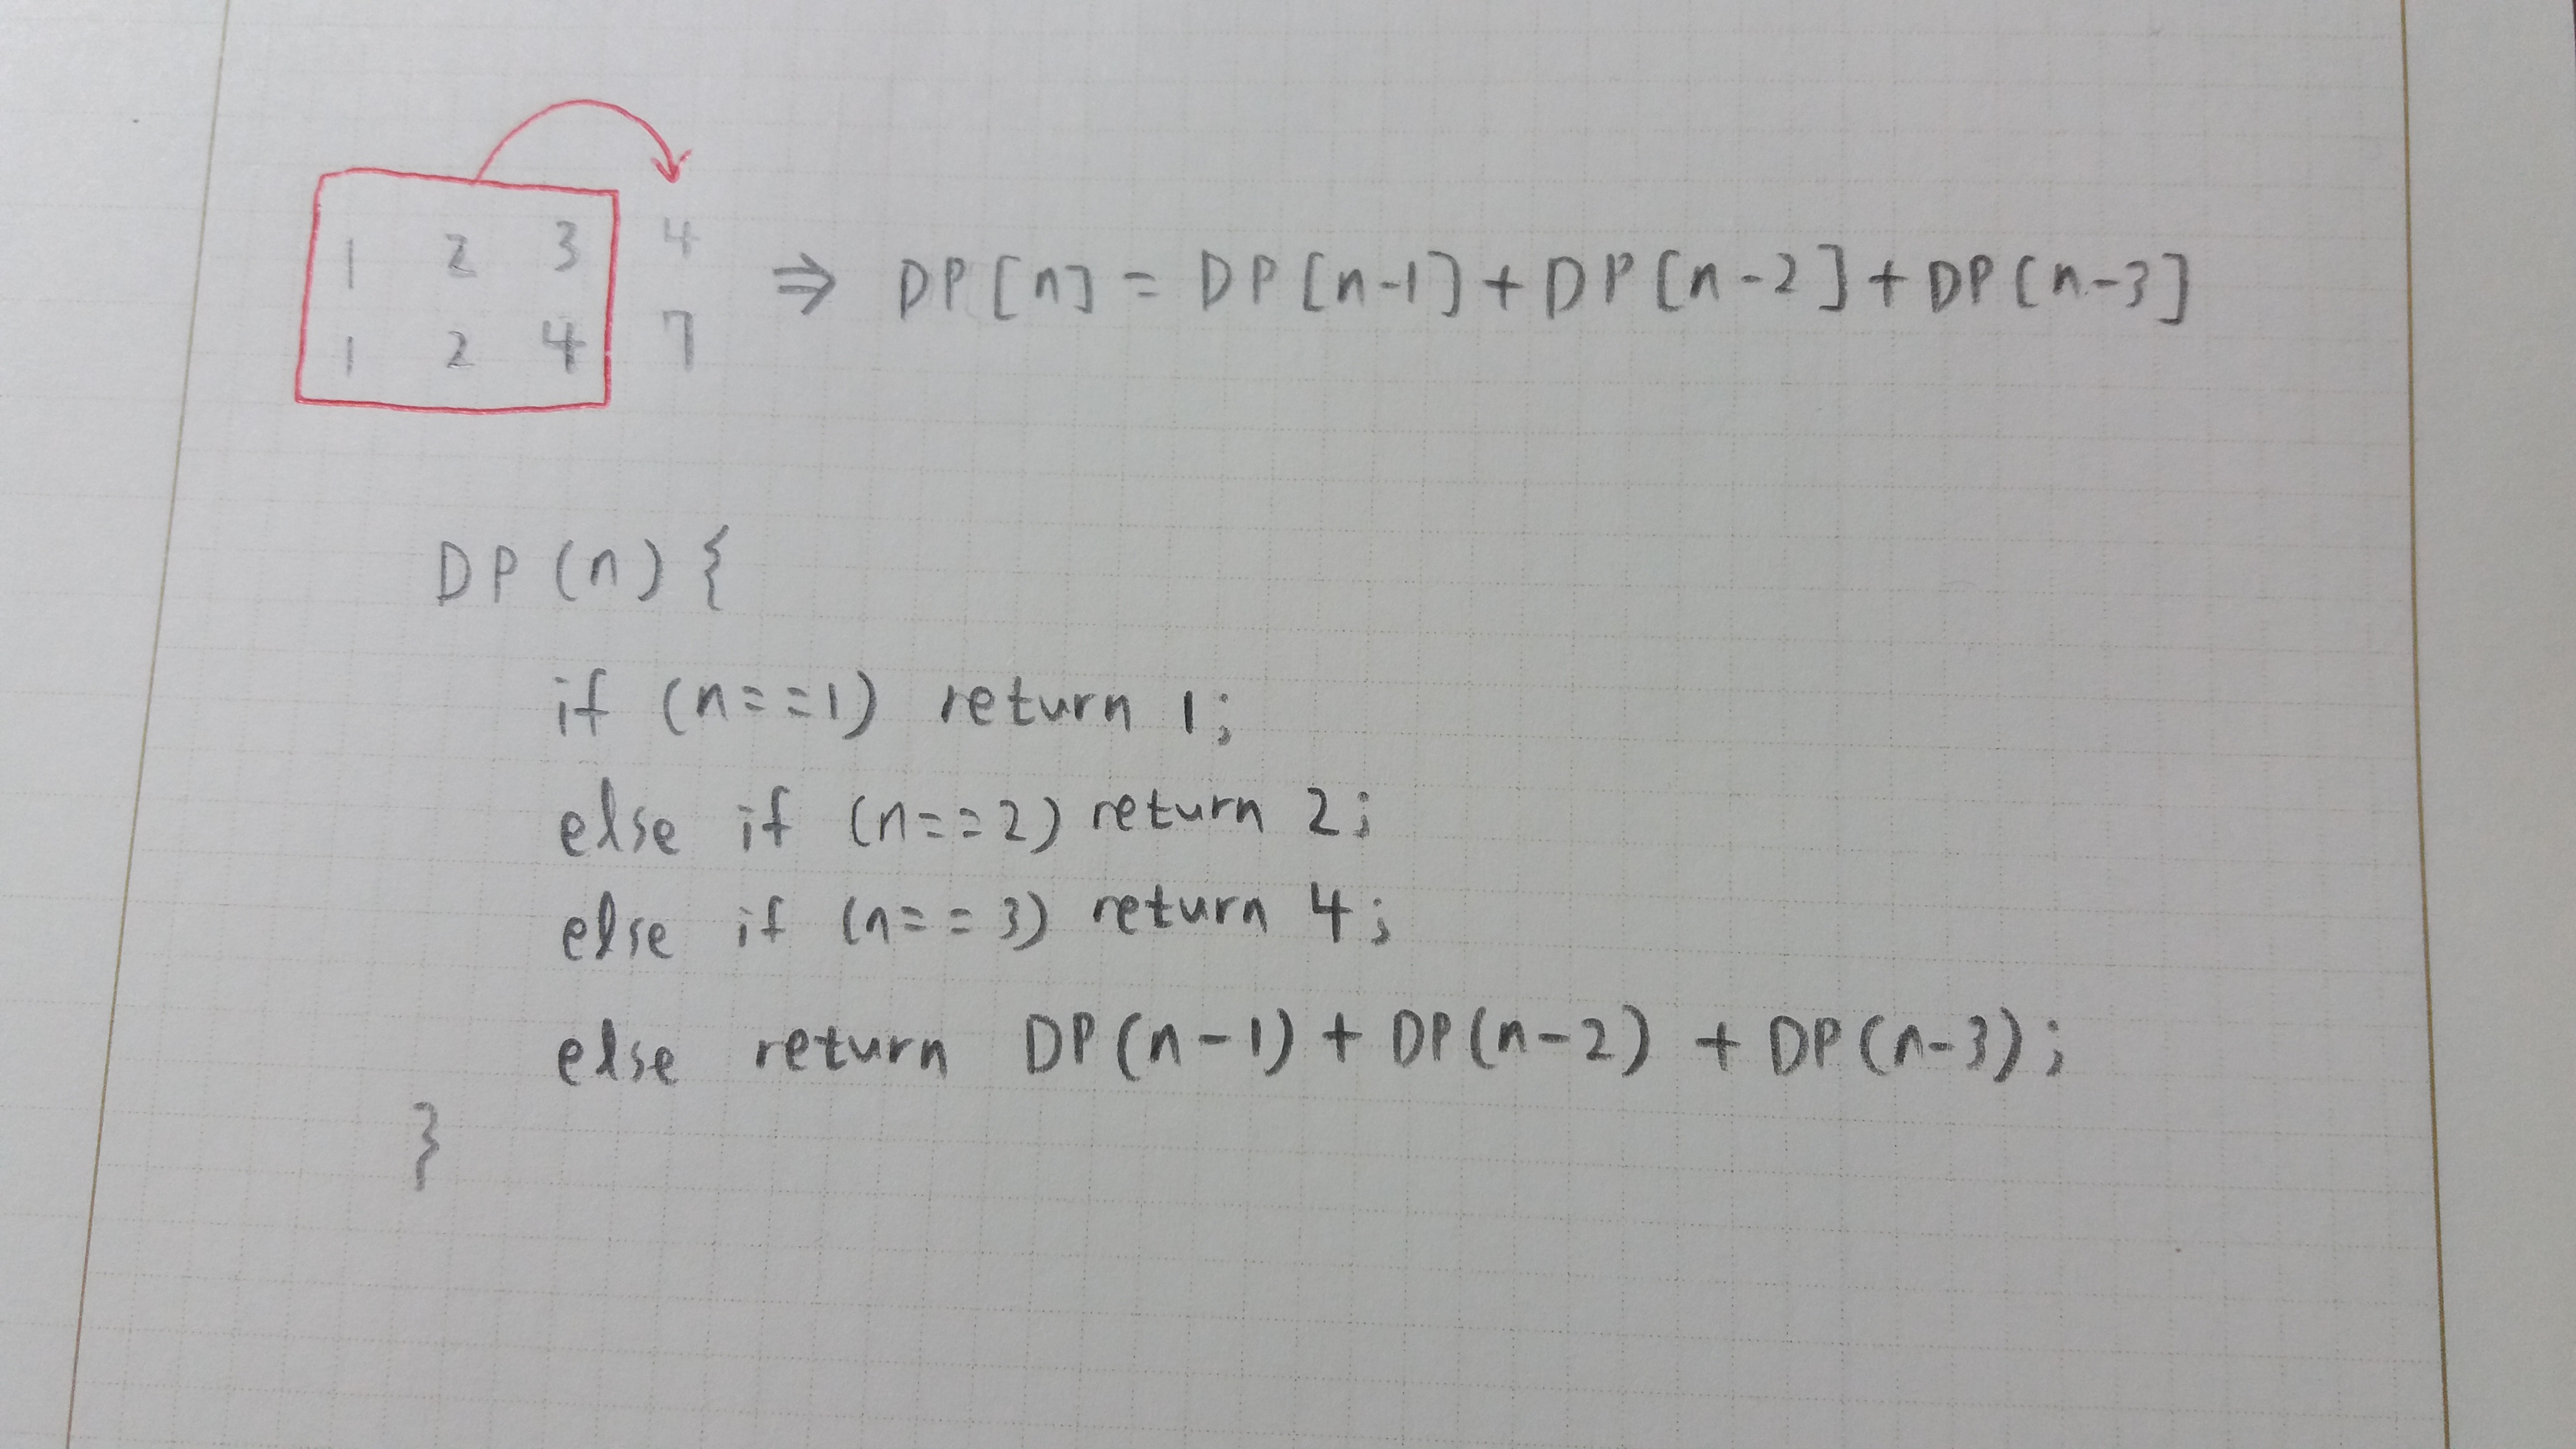 1 2 3 4
1 2 4 7
⇒ DP[n] = DP[n-1] + DP[n-2] + DP[n-3]
DP(n){
if (n==1) return 1;
else if (n==2) return 2;
else if (n==3) return 4;
else return DP(n-1) + DP(n-2) + DP(n-3);
}